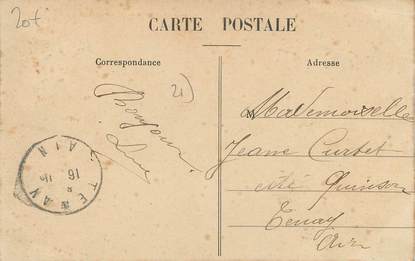 20t
CARTE POSTALE
Correspondance
Adresse
21)
Bonjour
Mademoiselle
Jeane Curtet
cité Quinson
Tenay
Ain
TENAY
AIN
16